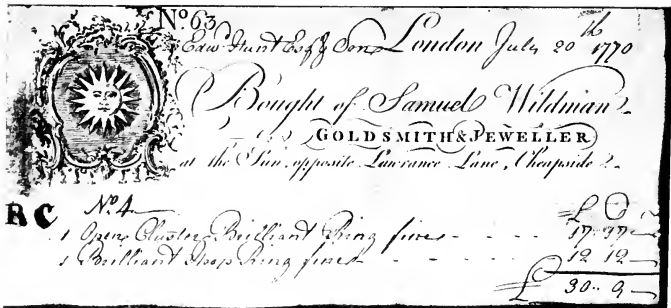 Nº 63
Edwd Hunt Esqr & Son London July 20th 1770
Bought of Samuel Wildman
GOLDSMITH & JEWELLER
at the Sun, opposite Lawrance Lane, Cheapside
RC Nº 4
1 Open Cluster Brilliant Ring fine 17 17
1 Brilliant Hoop Ring fine 12 12
£ 30 9